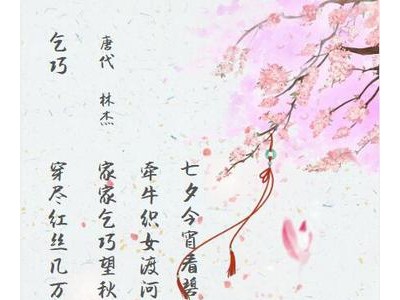 乞巧
唐代 林杰
七夕今宵看碧
牵牛织女渡河
家家乞巧望秋
穿尽红丝几万